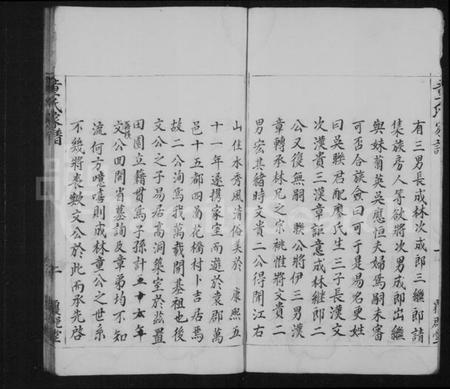 有三男長成林次成郎三繼郎請
集族房人等欲將次男成郎出繼
與妹蘭英英應恒夫婦爲嗣未審
可否合族僉曰可于是易名更姓
曰吳联君配廖氏生三子長漢文
次漢貴三漢章詎意成林繼郎二
公又復無嗣 联公將伊三男漢
章轉承林兄之宗祧惟將文貴二
男宏其緒時文貴二公得聞江右
山佳水秀風清俗美於 康熙五
十一年遂携家室而遊於袁郡萬
邑十五都四啚花橋村卜吉居焉
故二公洵爲我萬載開基祖也後
文公之子易居高洞築室於茲置
田園立籍貫焉子孫計至今年
文公四間省墓詢及章弟均不知
流何方噫嘻則成林童公之世系
不幾將衰歟文公於此而承先啓
童氏家譜